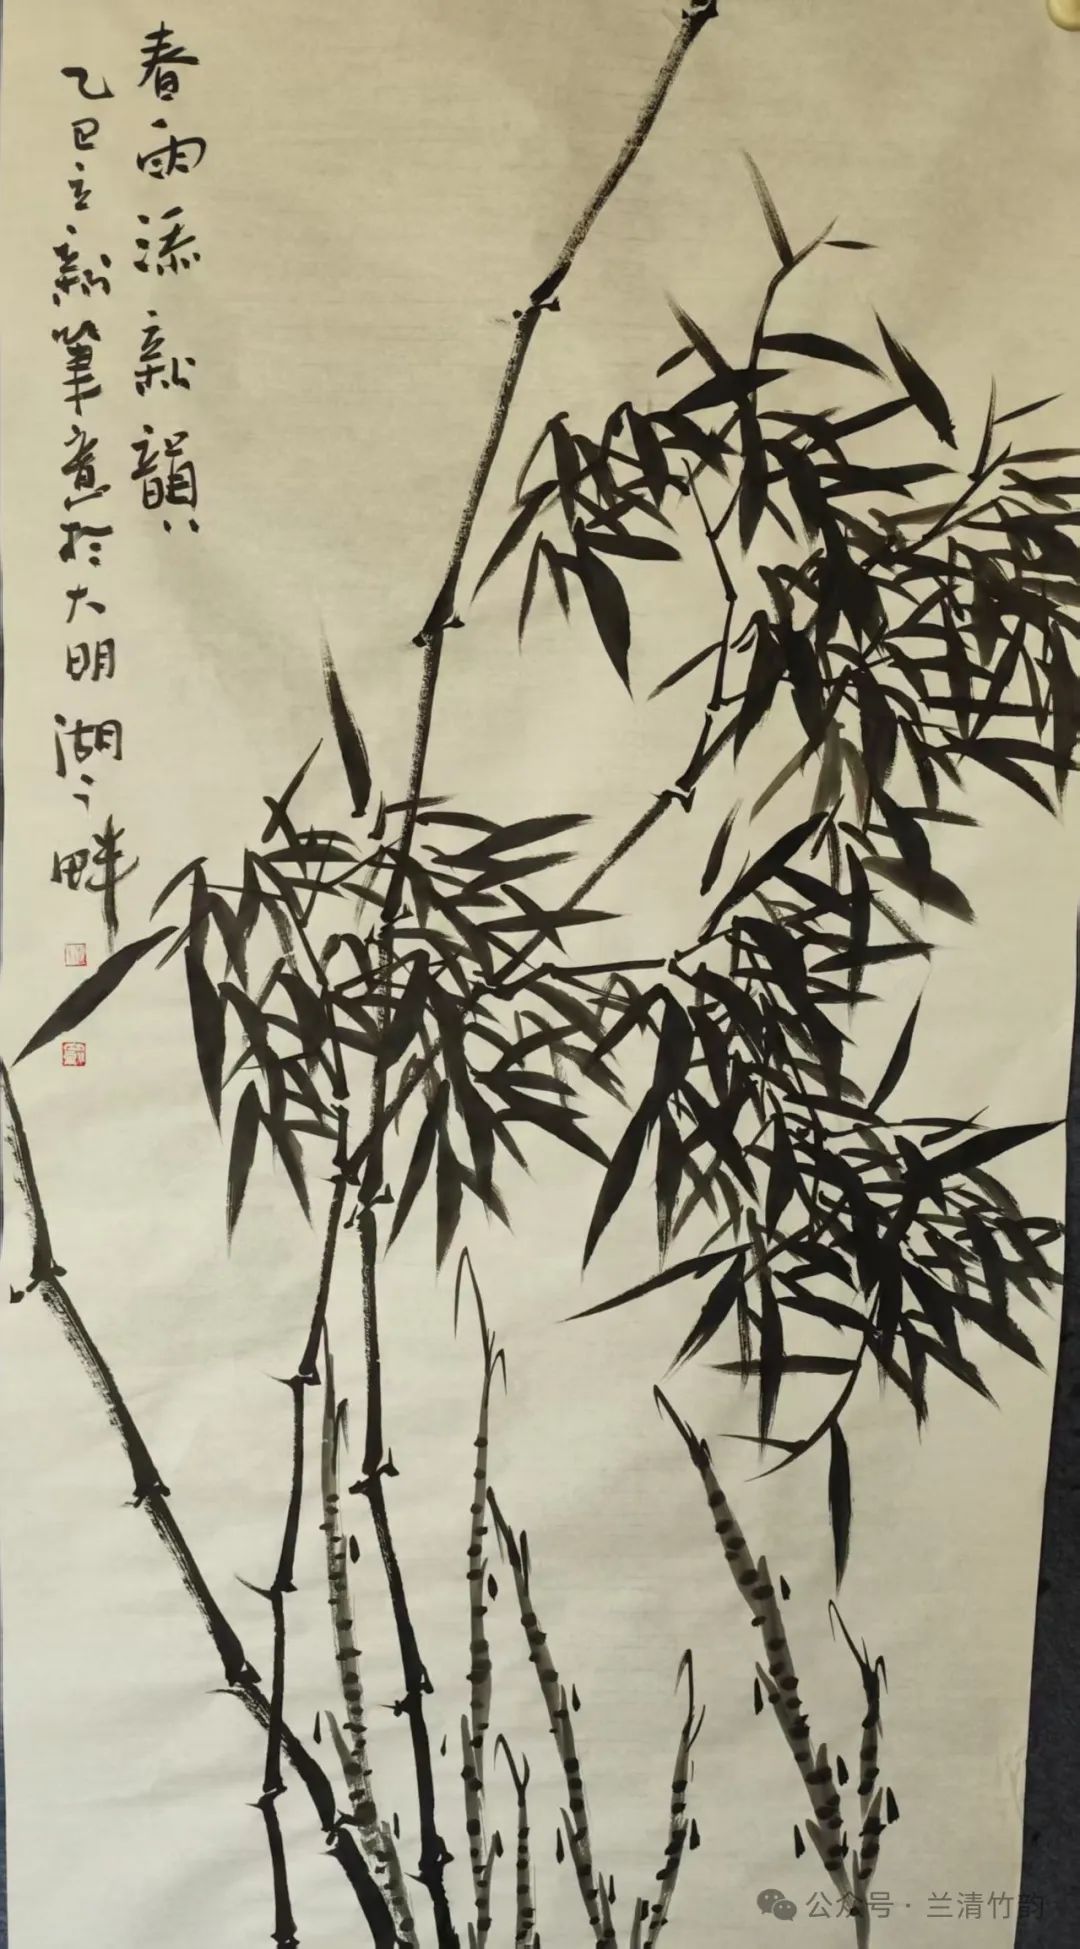 春雨添新韵
乙巳立新笔意于大明湖之畔
公众号·兰清竹韵